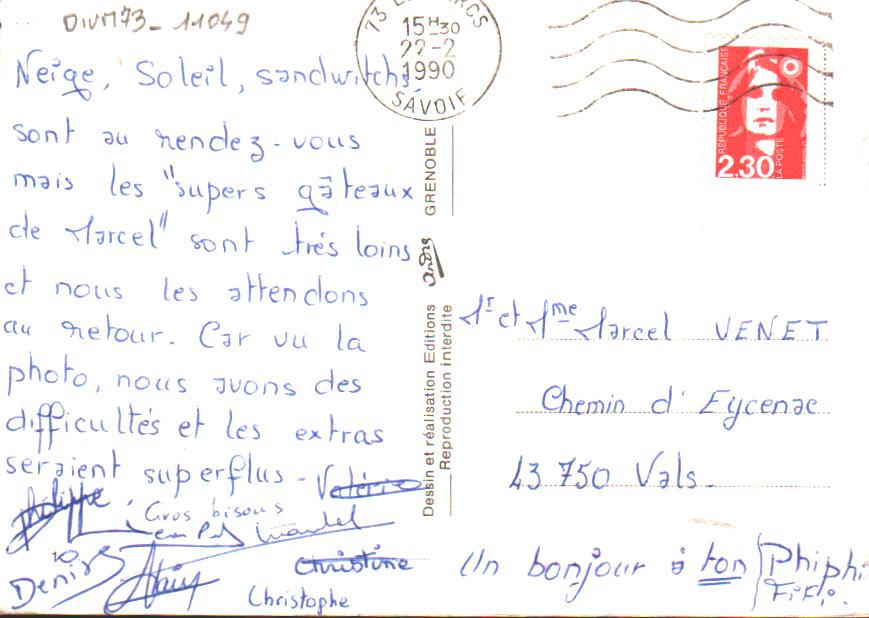 DIVM73_11049
15H30
22-2
1990
SAVOIE
REPUBLIQUE FRANÇAISE
2.30
LA POSTE
Neige, Soleil, sandwitchs,
sont au rendez-vous
mais les "supers gâteaux
de Marcel" sont trés loins
et nous les attendons
au retour. Car vu la
photo, nous avons des
difficultés et les extras
seraient superflus - Valérie
Philippe
Gros bisous
Denis Alain
Christine
Christophe
GRENOBLE
André
Dessin et réalisation Editions
Reproduction interdite
Mr et Mme Marcel VENET
Chemin d'Eycenac
43 750 Vals_
Un bonjour à ton Phiphi
FiFi.